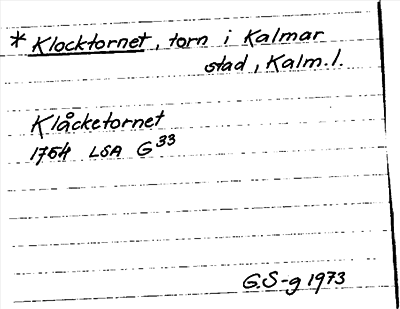 * Klocktornet, torn i Kalmar
stad, Kalm. l.
Klåcketornet
1764 LSA G 33
G.S-g 1973